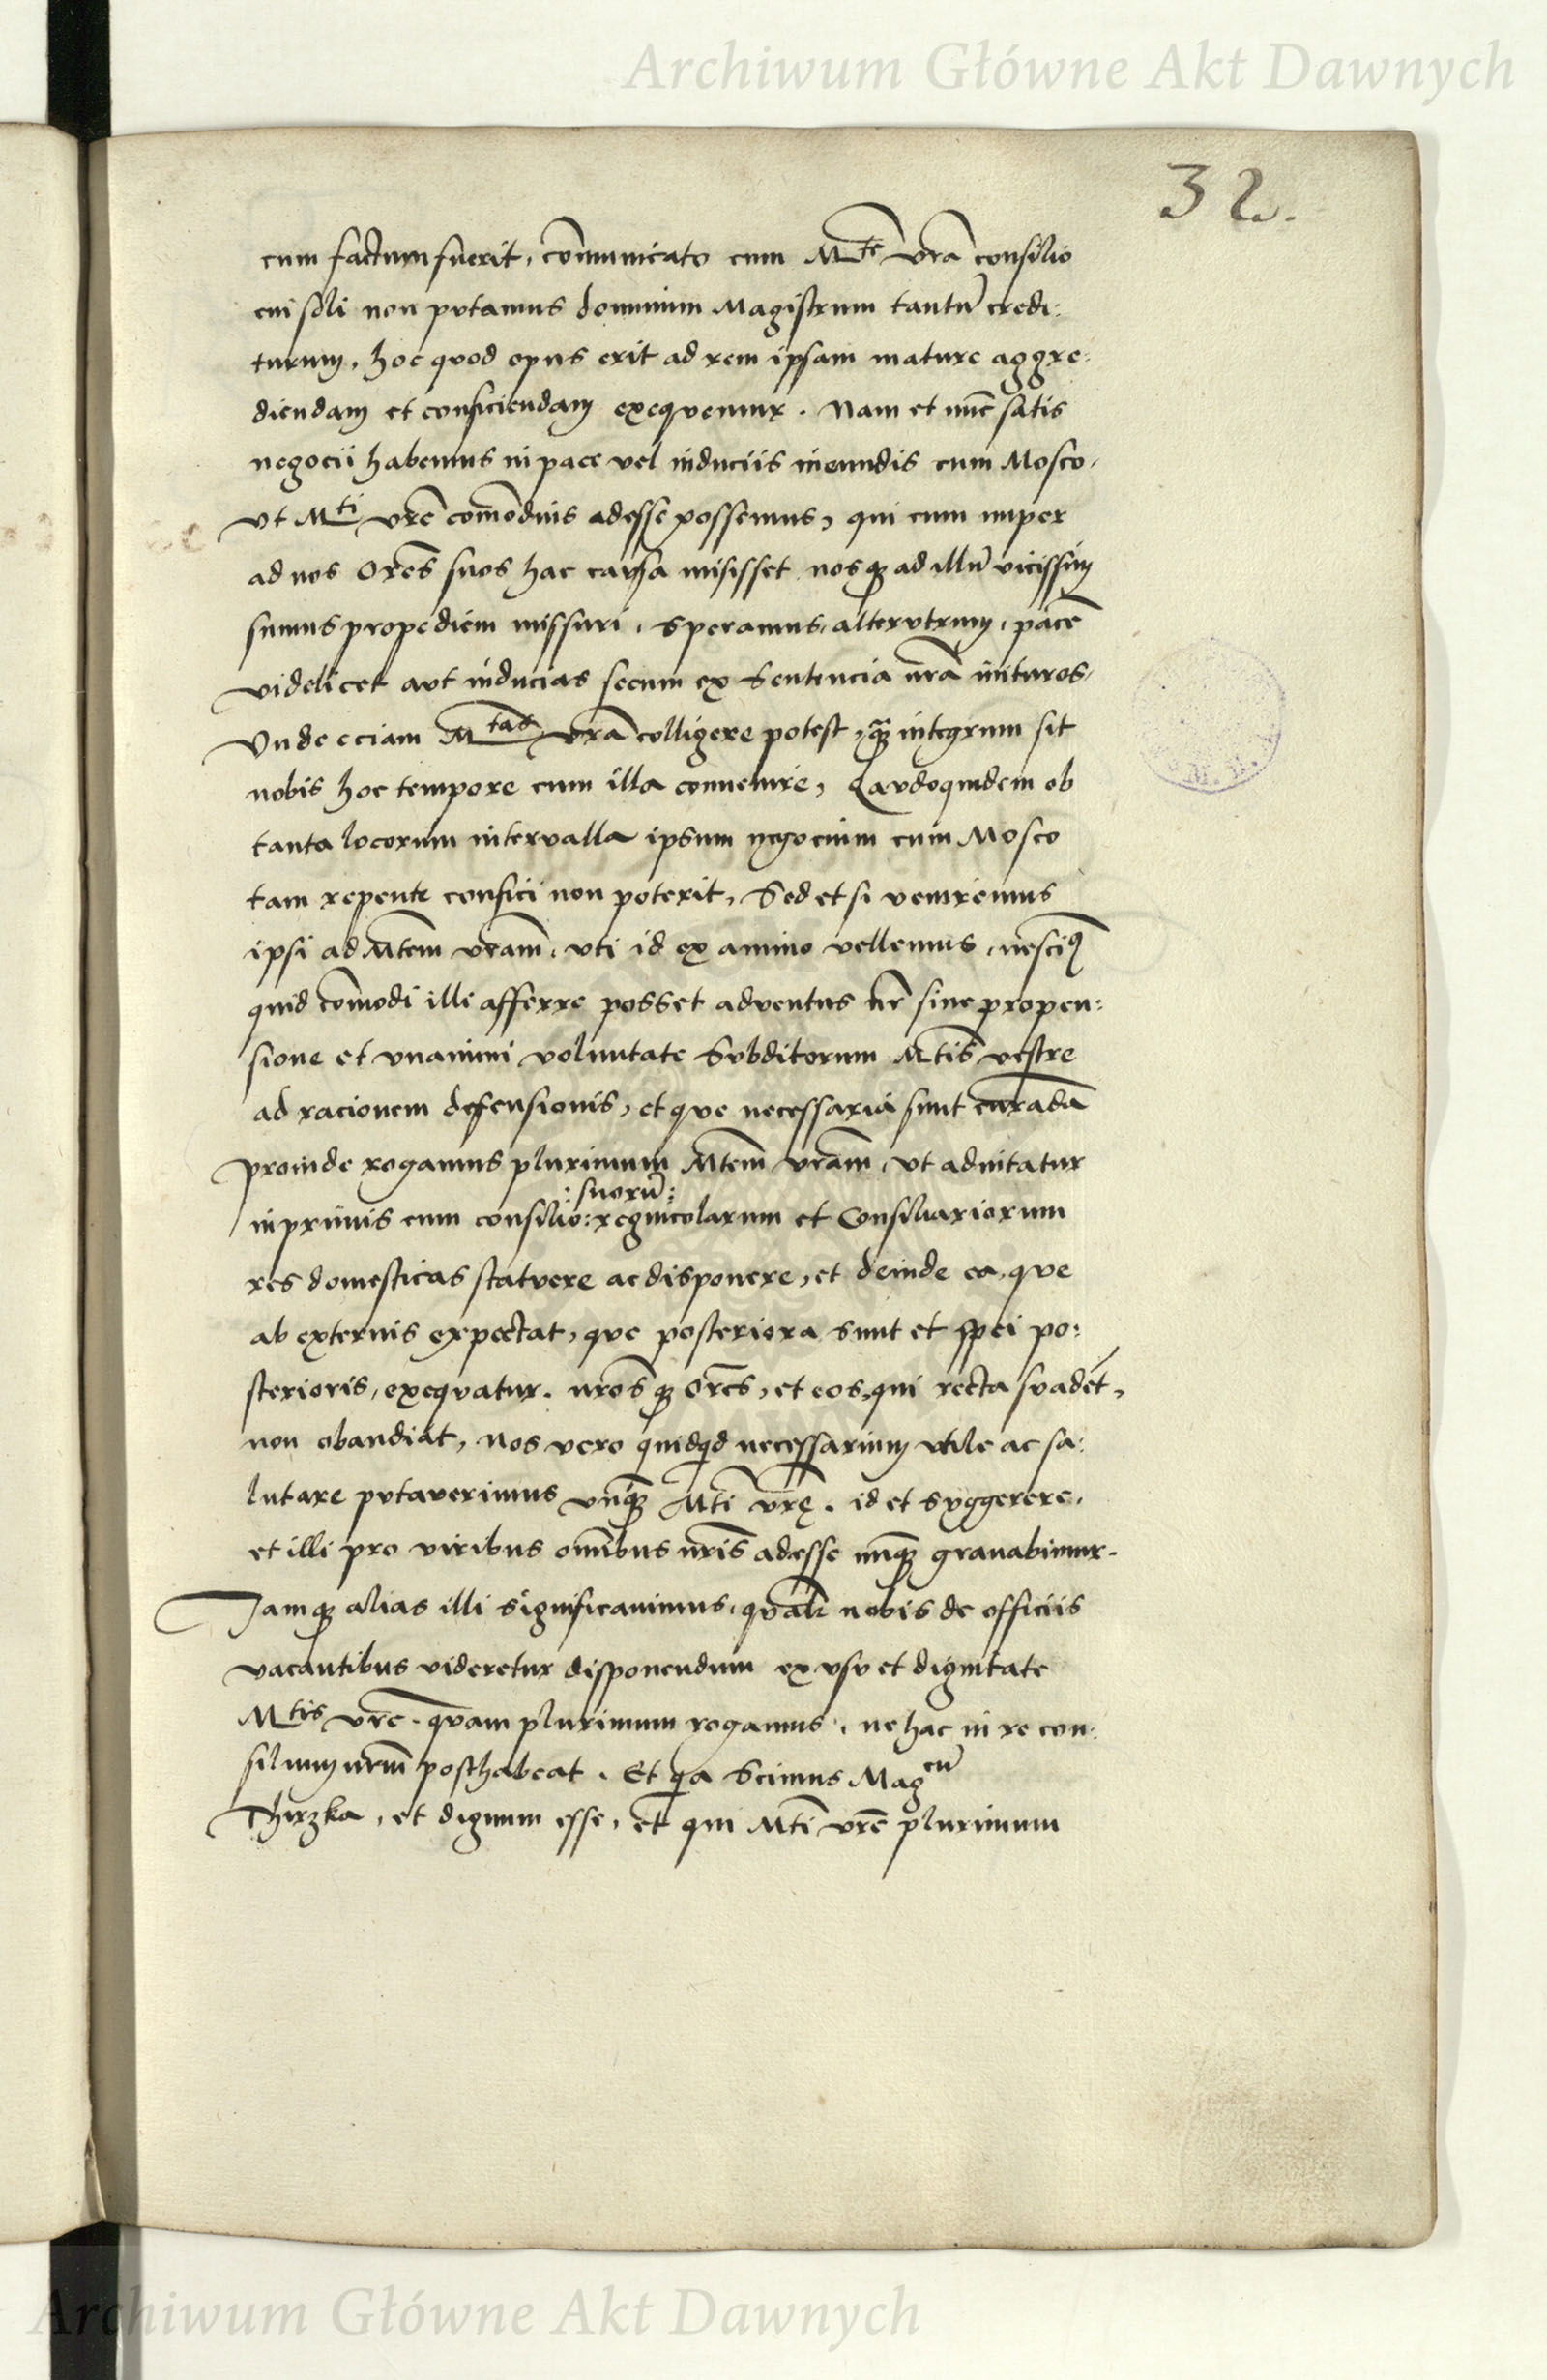 Archiwum Główne Akt Dawnych
32.
cum factum fuerit, com̄unicato cum M^te vr̄a consilio
cui soli non putamus dominum Magistrum tantū credi:
turum, hoc quod opus erit ad rem ipsam mature aggre:
diendam et conficiendam exequemur. Nam et nūc satis
negocii habemus in pace vel induciis ineundis cum Mosco,
vt M^ti vr̄e com̄odius adesse possemus, qui cum nuper
ad nos Or̄es suos hac causa misisset nosq; ad illū vicissim
sumus propediem missuri, speramus, alterutrum, pacē
videlicet aut inducias secum ex Sentencia nr̄a inituros,
Vnde eciam M^tas vr̄a colligere potest, q̄ integrum sit
nobis hoc tempore cum illa convenire, Qandoquidem ob
tanta locorum intervalla ipsum negocium cum Mosco
tam repente confici non poterit, Sed et si veniremus
ipsi ad Mtem̄ vram̄, vti id ex animo vellemus, nescimꝰ
quid com̄odi illi afferre posset adventus nr̄ sine propen:
sione et vnanimi voluntate Subditorum Mtis̄ vestre
ad racionem defensionis, et que necessaria sunt curādā
proinde rogamus plurimum Mtem̄ vram̄, vt adnitatur
:suorū:
inprimis cum consilio: regnicolarum et Consiliariorum
res domesticas statuere ac disponere, et deinde ea, que
ab externis expectat, que posteriora sunt et spei po:
sterioris, exequatur. nr̄os q; Or̄es, et eos, qui recta suadēt,
non obaudiāt, nos vero quidqid necessarium vtile ac sa:
lutare putaverimus vnq̄ Mti̅ vr̄ę. id et suggerere,
et illi pro viribus om̄ibus nr̄is adesse nunq̄ gravabimur.
Jamq; alias illi significavimus, qualr̄ nobis de officiis
vacantibus videretur disponendum ex vsu et dignitate
M^tis vr̄e. quam plurimum rogamus, ne hac in re con:
silium nrm̄ posthabeat. Et qia Scimus Mag^cū
Thirzka, et dignum esse, et qui Mti̅ vr̄e plurimum
Archiwum Główne Akt Dawnych